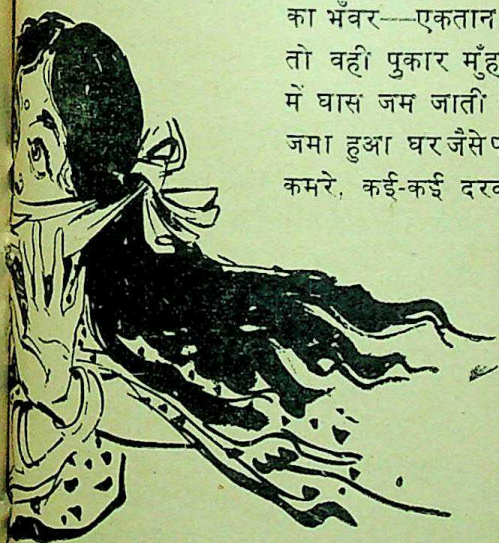 का भँवर—एकतान
तो वही पुकार मुँह
में घास जम जाती
जमा हुआ घर जैसे
कमरे, कई-कई